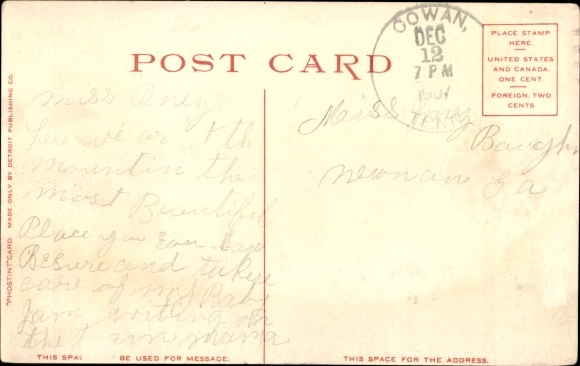 POST CARD
COWAN,
DEC
12
7 PM
TENN
PLACE STAMP
HERE.
UNITED STATES
AND CANADA,
ONE CENT.
FOREIGN, TWO
CENTS
"PHOSTINT" CARD. MADE ONLY BY DETROIT PUBLISHING CO.
Miss
here we ar
mountin the
most Beautiful
Place you Ever saw
Be sure and take
care of my Baby
writing on
the train mama
Miss
Baughn
Newnan Ga
THIS SPA BE USED FOR MESSAGE.
THIS SPACE FOR THE ADDRESS.